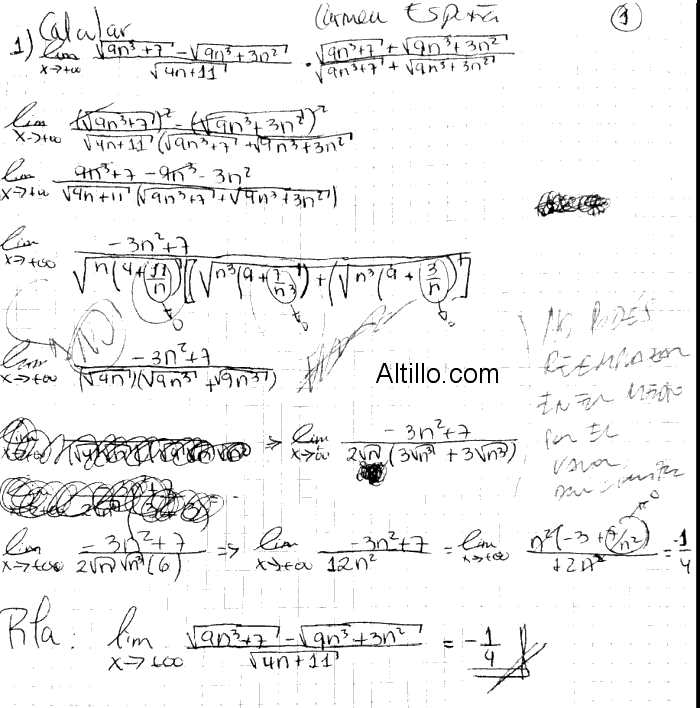 Calcular
Carmen
1
1) lim x→+∞ (√(9n³+7) - √(9n³+3n²)) / √(4n+11) · (√(9n³+7) + √(9n³+3n²)) / (√(9n³+7) + √(9n³+3n²))
lim x→+∞ ((√(9n³+7))² - (√(9n³+3n²))²) / (√(4n+11) (√(9n³+7) + √(9n³+3n²)))
lim x→+∞ (9n³+7 - 9n³ - 3n²) / (√(4n+11) (√(9n³+7) + √(9n³+3n²)))
lim x→+∞ (-3n²+7) / (√(n(4+11/n)) [(√(n³(9+7/n³))) + (√(n³(9+3/n)))])
→0 →0 →0
NO!
lim x→+∞ (-3n²+7) / ((√4n)(√9n³ + √9n³))
Altillo.com
NO PODÉS
REEMPLAZAR
EN EL MEDIO
POR EL
VALOR
⇒ lim x→∞ (-3n²+7) / (2√n (3√n³ + 3√n³))
lim x→+∞ (-3n²+7) / (2√n √n³ (6)) ⇒ lim x→+∞ (-3n²+7) / 12n² = lim x→+∞ n²(-3+7/n²) / 12n² = -1/4
→0
Rta: lim x→+∞ (√(9n³+7) - √(9n³+3n²)) / √(4n+11) = -1/4